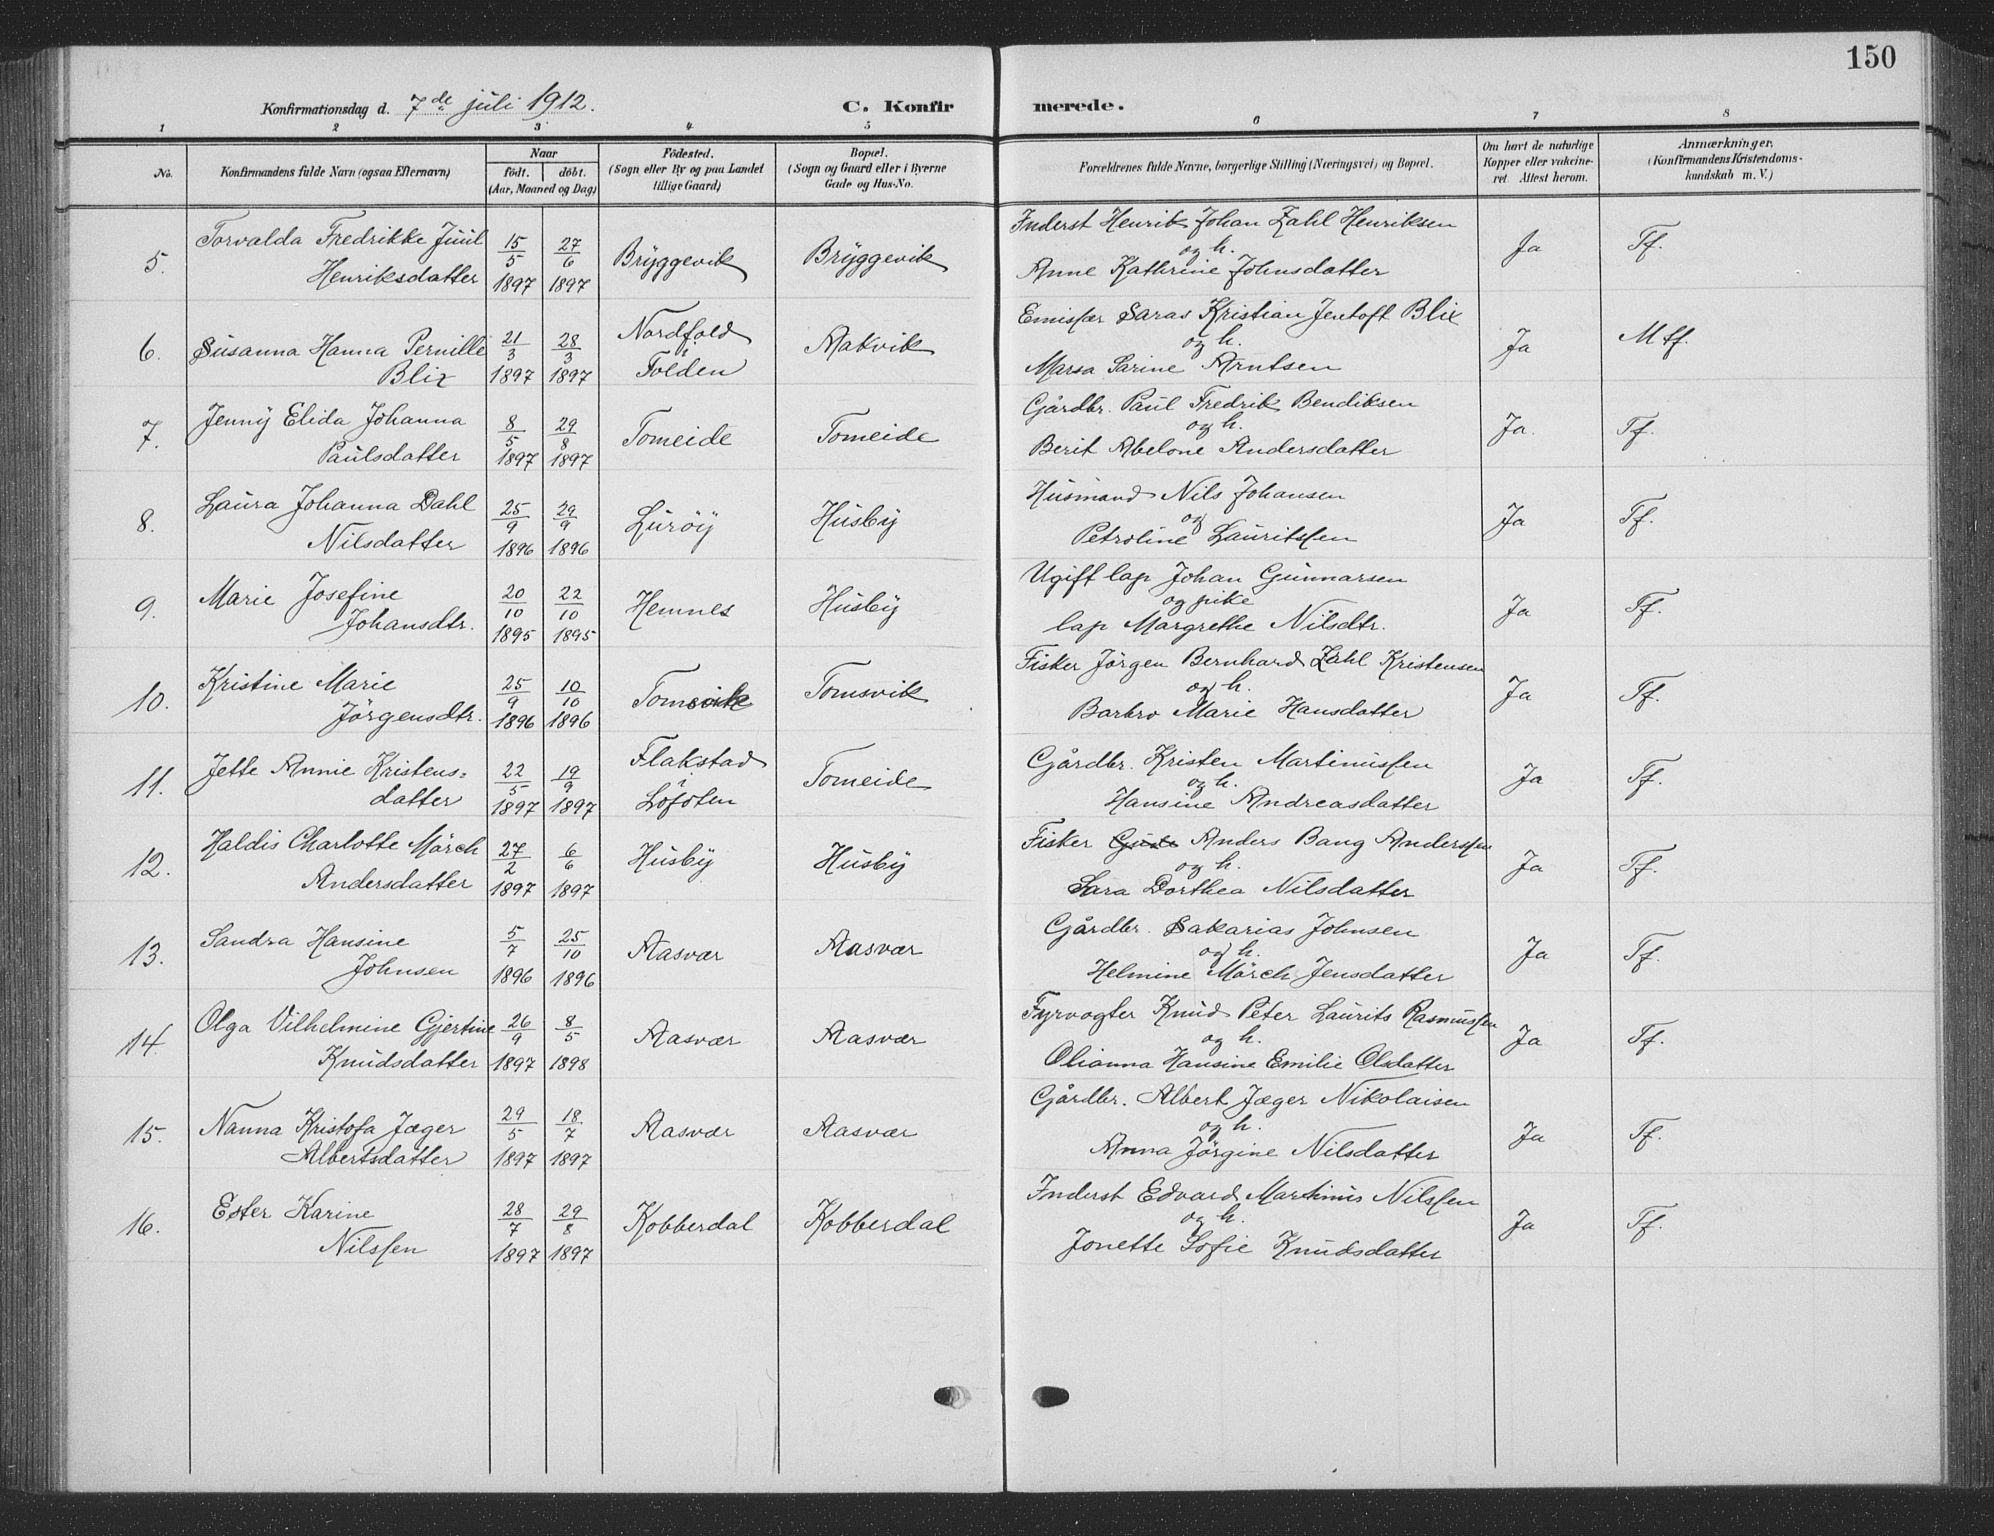 150
Konfirmationsdag d. 7de juli 1912. C. Konfirmerede.
1 2 3 4 5 6 7 8
No. Konfirmandens fulde Navn (ogsaa Efternavn) Naar födt. döbt. (Aar, Maaned og Dag) Födested. (Sogn eller By og paa Landet tillige Gaard) Bopæl. (Sogn og Gaard eller i Byerne Gade og Hus-No. Forældrenes fulde Navne, borgerlige Stilling (Næringsvei) og Bopæl. Om havt de naturlige Kopper eller vakcineret. Attest herom. Anmærkninger, (Konfirmandens Kristendomskundskab m. V.)
5. Torvalda Fredrikke Juul Henriksdatter 15/5 1897 27/6 1897 Bryggevik Bryggevik Inderst Henrik Johan Zahl Henriksen og h. Anne Kathrine Johnsdatter Ja Tf.
6. Susanna Hanna Pernille Blix 21/3 1897 28/3 1897 Nordfold i Folden Aakvik Emissær Saras Kristian Jentoft Blix og h. Marsa Sarine Arntsen Ja Mtf.
7. Jenny Elida Johanna Paulsdatter 8/5 1897 29/8 1897 Tomeide Tomeide Gårdbr. Paul Fredrik Bendiksen og h. Berit Abelone Andersdatter Ja. Tf.
8. Laura Johanna Dahl Nilsdatter 25/9 1896 29/9 1896 Luröy Husby Husmand Nils Johansen og Petroline Lauritssen Ja Tf.
9. Marie Josefine Johansdtr. 20/10 1895 22/10 1895 Hemnes Husby Ugift lap Johan Gunnarsen og pike lap Margrethe Nilsdtr. Ja Tf.
10. Kristine Marie Jörgensdtr. 25/9 1896 10/10 1896 Tomsvik Tomsvik Fisker Jörgen Bernhard Zahl Kristensen og h. Barbro Marie Hansdatter Ja Tf.
11. Jette Annie Kristens= datter 22/5 1897 19/9 1897 Flakstad i Lofoten Tomeide Gårdbr. Kristen Martinussen og h. Hansine Andreasdatter Ja Tf.
12. Haldis Charlotte Mörch Andersdatter 27/2 1897 6/6 1897 Husby Husby Fisker Anders Bang Anderssen og h. Sara Dorthea Nilsdatter Ja Tf.
13. Sandra Hansine Johnsen 5/7 1896 25/10 1896 Aasvær Aasvær Gårdbr. Sakarias Johnsen og h. Helmine Mörch Jensdatter Ja Tf.
14. Olga Vilhelmine Gjertine Knudsdatter 26/9 1897 8/5 1898 Aasvær Aasvær Fyrvogter Knud Peter Laurits Rasmussen og h. Olianna Hansine Emilie Olsdatter Ja Tf.
15. Nanna Kristofa Jæger Albertsdatter 29/5 1897 18/7 1897 Aasvær Aasvær Gårdbr. Albert Jæger Nikolaisen og h. Anna Jörgine Nilsdatter Ja Tf.
16. Ester Karine Nilssen 28/7 1897 29/8 1897 Kobberdal Kobberdal Inderst Edvard Martinus Nilssen og h. Jonette Sofie Knudsdatter Ja Tf.